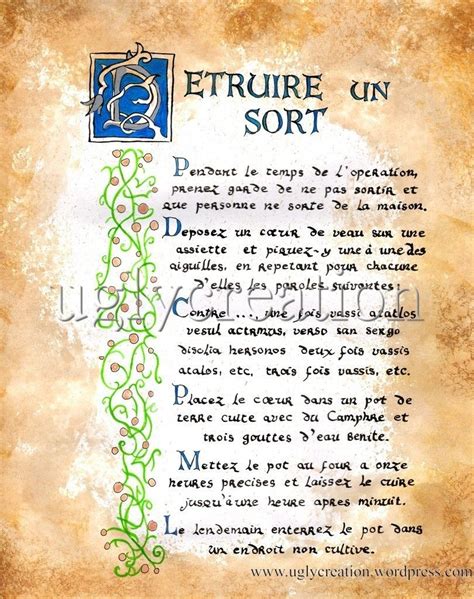 DETRUIRE UN
SORT
Pendant le temps de l'operation,
prenez garde de ne pas sortir et
que personne ne sorte de la maison.
Deposez un cœur de veau sur une
assiette et piquez-y une à une des
aiguilles, en repetant pour chacune
d'elles les paroles suivantes:
Contre ..., une fois vassi atatlos
vesul actrmus, verso san sergo
disolia hersonos deux fois vassis
atalos, etc, trois fois vassis, etc.
Placez le cœur dans un pot de
terre cuite avec du Camphre et
trois gouttes d'eau benite.
Mettez le pot au four a onze
heures precises et laissez le cuire
jusqu'à une heure apres minuit.
Le lendemain enterrez le pot dans
un endroit non cultive.
uglycreation
www.uglycreation.wordpress.com